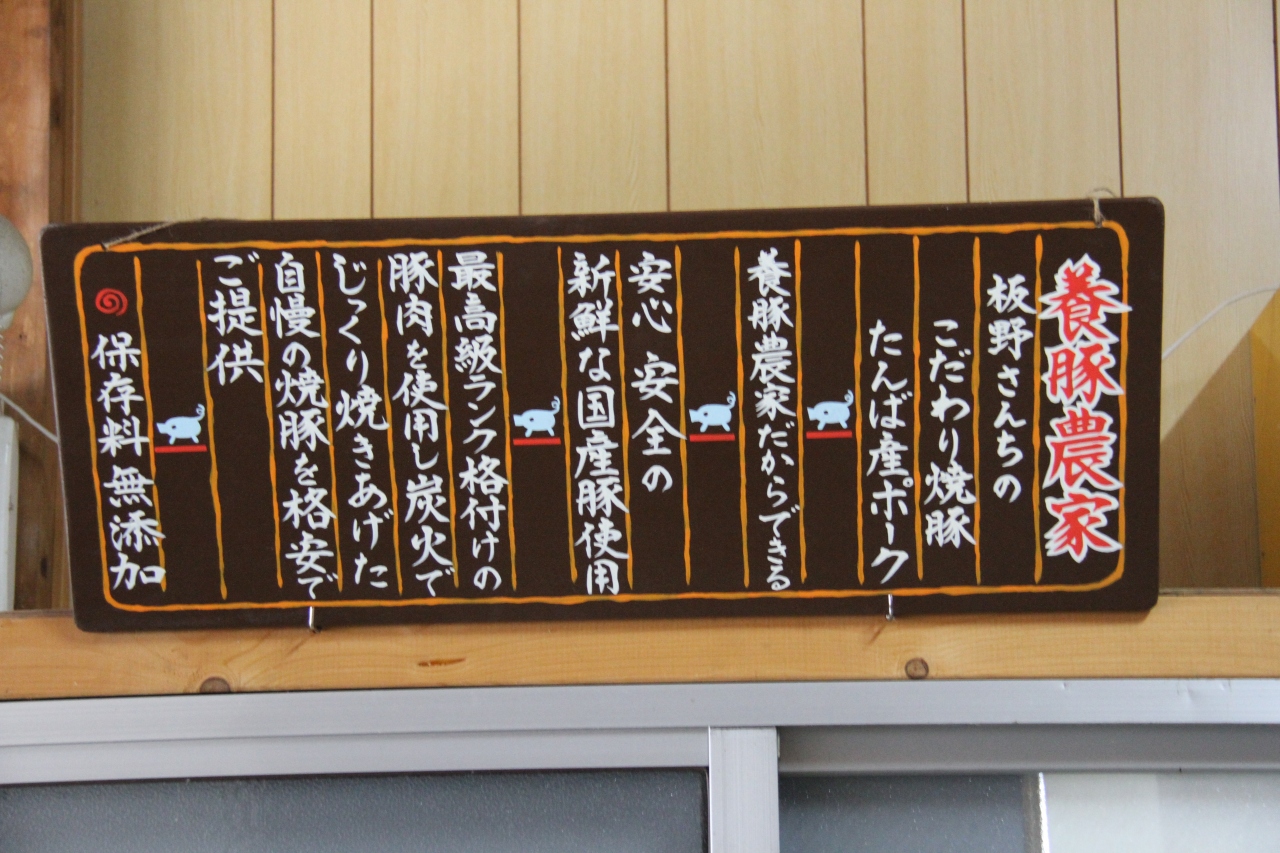 養豚農家
板野さんちの
こだわり焼豚
たんば産ポーク
養豚農家だからできる
安心 安全の
新鮮な国産豚使用
最高級ランク格付けの
豚肉を使用し炭火で
じっくり焼きあげた
自慢の焼豚を格安で
ご提供
保存料無添加